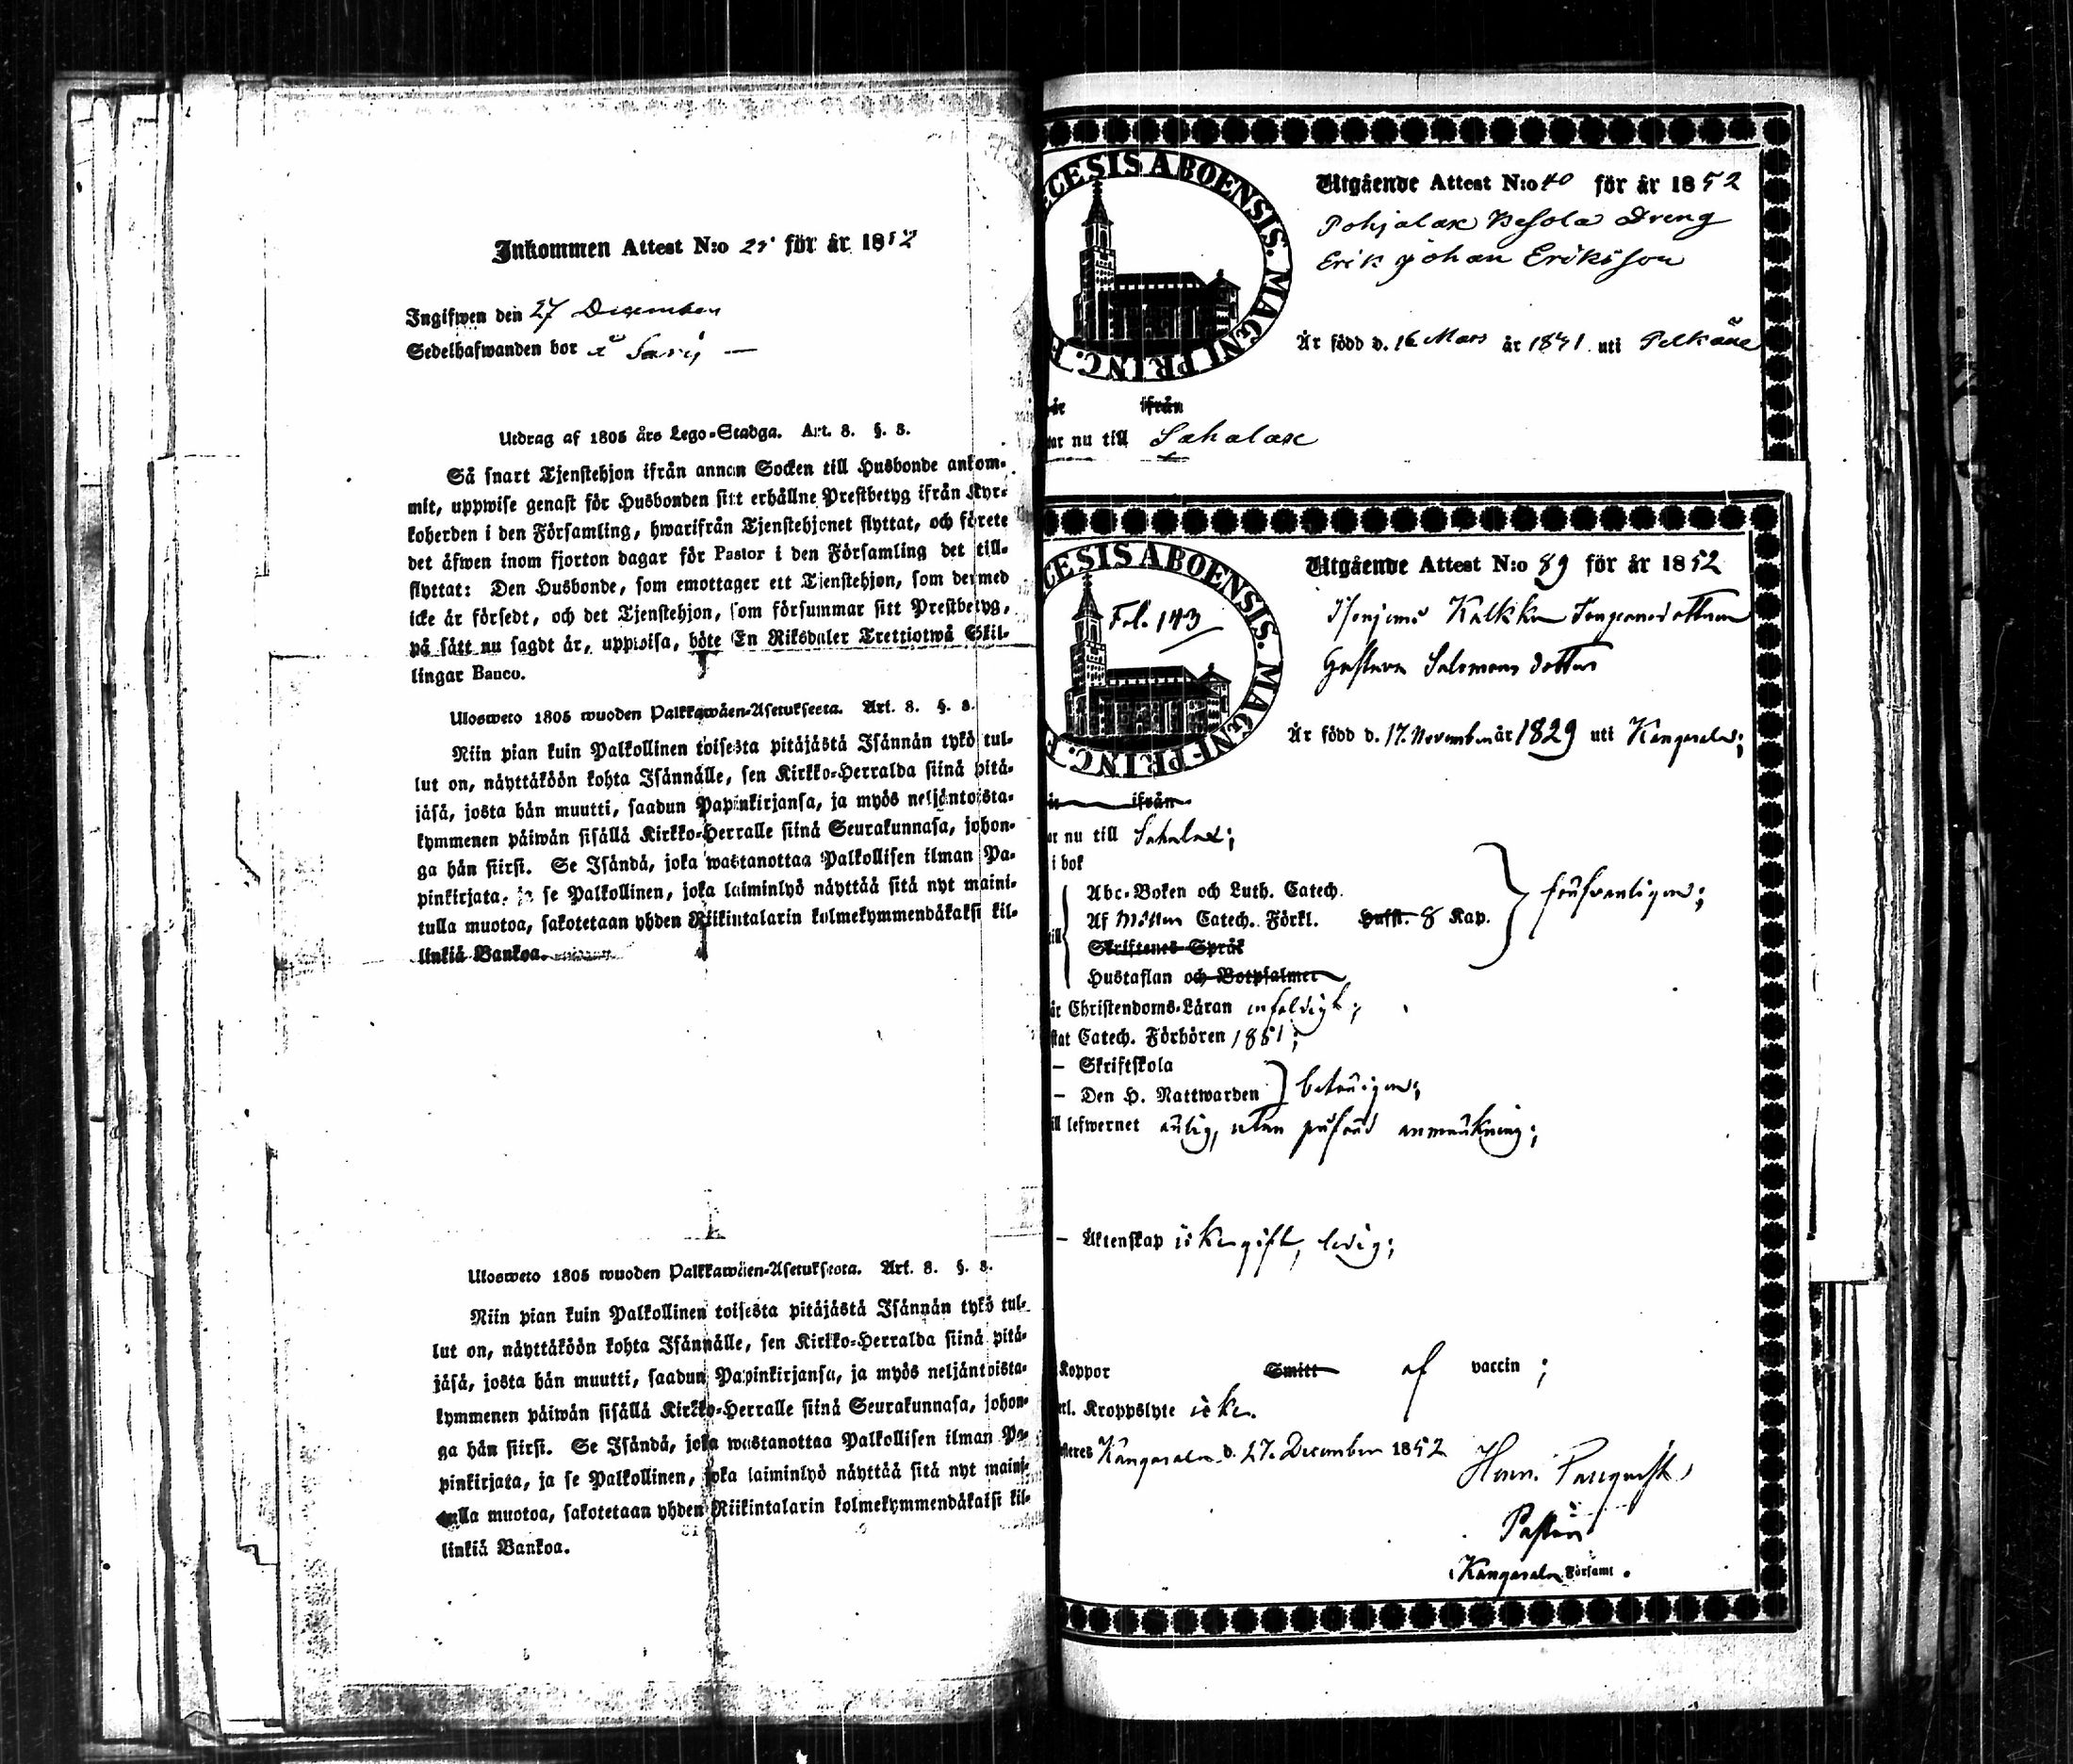 Inkommen Attest N:o 25 för år 1852
Ingifwen den 27 December
Sedelhafwanden bor å Sarij —
Utdrag af 1805 års Lego-Stadga. Art. 8. §. 8.
Så snart Tjenstehjon ifrån annan Socken till Husbonde ankom-
mit, uppwise genast för Husbonden sitt erhållne Prestbetyg ifrån Kyr-
koherden i den Församling, hwarifrån Tjenstehjonet flyttat, och förete
det äfwen inom fjorton dagar för Pastor i den Församling det till-
flyttat: Den Husbonde, som emottager ett Tjenstehjon, som dermed
icke är försedt, och det Tjenstehjon, som försummar sitt Prestbetyg,
på sätt nu sagdt är, uppwisa, böte En Riksdaler Trettiotwå Skil-
lingar Banco.
Ulosweto 1805 wuoden Palkkawäen-Asetuksesta. Art. 8. §. 8.
Niin pian kuin Palkollinen toisesta pitäjästä Isännän tykö tul-
lut on, näyttäköön kohta Isännälle, sen Kirkko-Herralda siinä pitä-
jäsä, josta hän muutti, saadun Papinkirjansa, ja myös neljäntoista-
kymmenen päiwän sisällä Kirkko-Herralle siinä Seurakunnasa, johon-
ga hän siirsi. Se Isändä, joka wastanottaa Palkollisen ilman Pa-
pinkirjata, ja se Palkollinen, joka laiminlyö näyttää sitä nyt maini-
tulla muotoa, sakotetaan yhden Riikintalarin kolmekymmendäkaksi kil-
linkiä Bankoa.
Ulosweto 1805 wuoden Palkkawäen-Asetuksesta. Art. 8. §. 8.
Niin pian kuin Palkollinen toisesta pitäjästä Isännän tykö tul-
lut on, näyttäköön kohta Isännälle, sen Kirkko-Herralda siinä pitä-
jäsä, josta hän muutti, saadun Papinkirjansa, ja myös neljäntoista-
kymmenen päiwän sisällä Kirkko-Herralle siinä Seurakunnasa, johon-
ga hän siirsi. Se Isändä, joka wastanottaa Palkollisen ilman Pa-
pinkirjata, ja se Palkollinen, joka laiminlyö näyttää sitä nyt maini-
tulla muotoa, sakotetaan yhden Riikintalarin kolmekymmendäkaksi kil-
linkiä Bankoa.
CESIS ABOENSIS. MAGNI PRINC. F
Utgående Attest N:o 40 för år 1852
Pohjalax Dreng
Erik Johan Eriksson
År född d. 16 Mars år 1841 uti Pelkäne
ifrån
nu till Sahalax
CESIS ABOENSIS. MAGNI PRINC. F
Fol. 143
Utgående Attest N:o 89 för år 1852
Gustava Salomons dotter
År född d. 17. November år 1829 uti Kangasala;
ifrån
nu till Sahalax;
i bok
Abc-Boken och Luth. Catech.
Af Catech. Förkl. Hufst. 8 Kap.
försvarligen;
Skriftenes Språk
Hustaflan och Botpsalmer
Christendoms-Läran enfaldigt;
Catech. Förhören 1851;
– Skriftskola
– Den H. Nattwarden
behörigen;
lefwernet ärlig, utan anmärkning;
– Äktenskap icke gift, ledig;
Koppor Smitt af vaccin;
Kroppslyte icke.
Kangasala d. 27. December 1852
Pastor
Kangasala Församl.